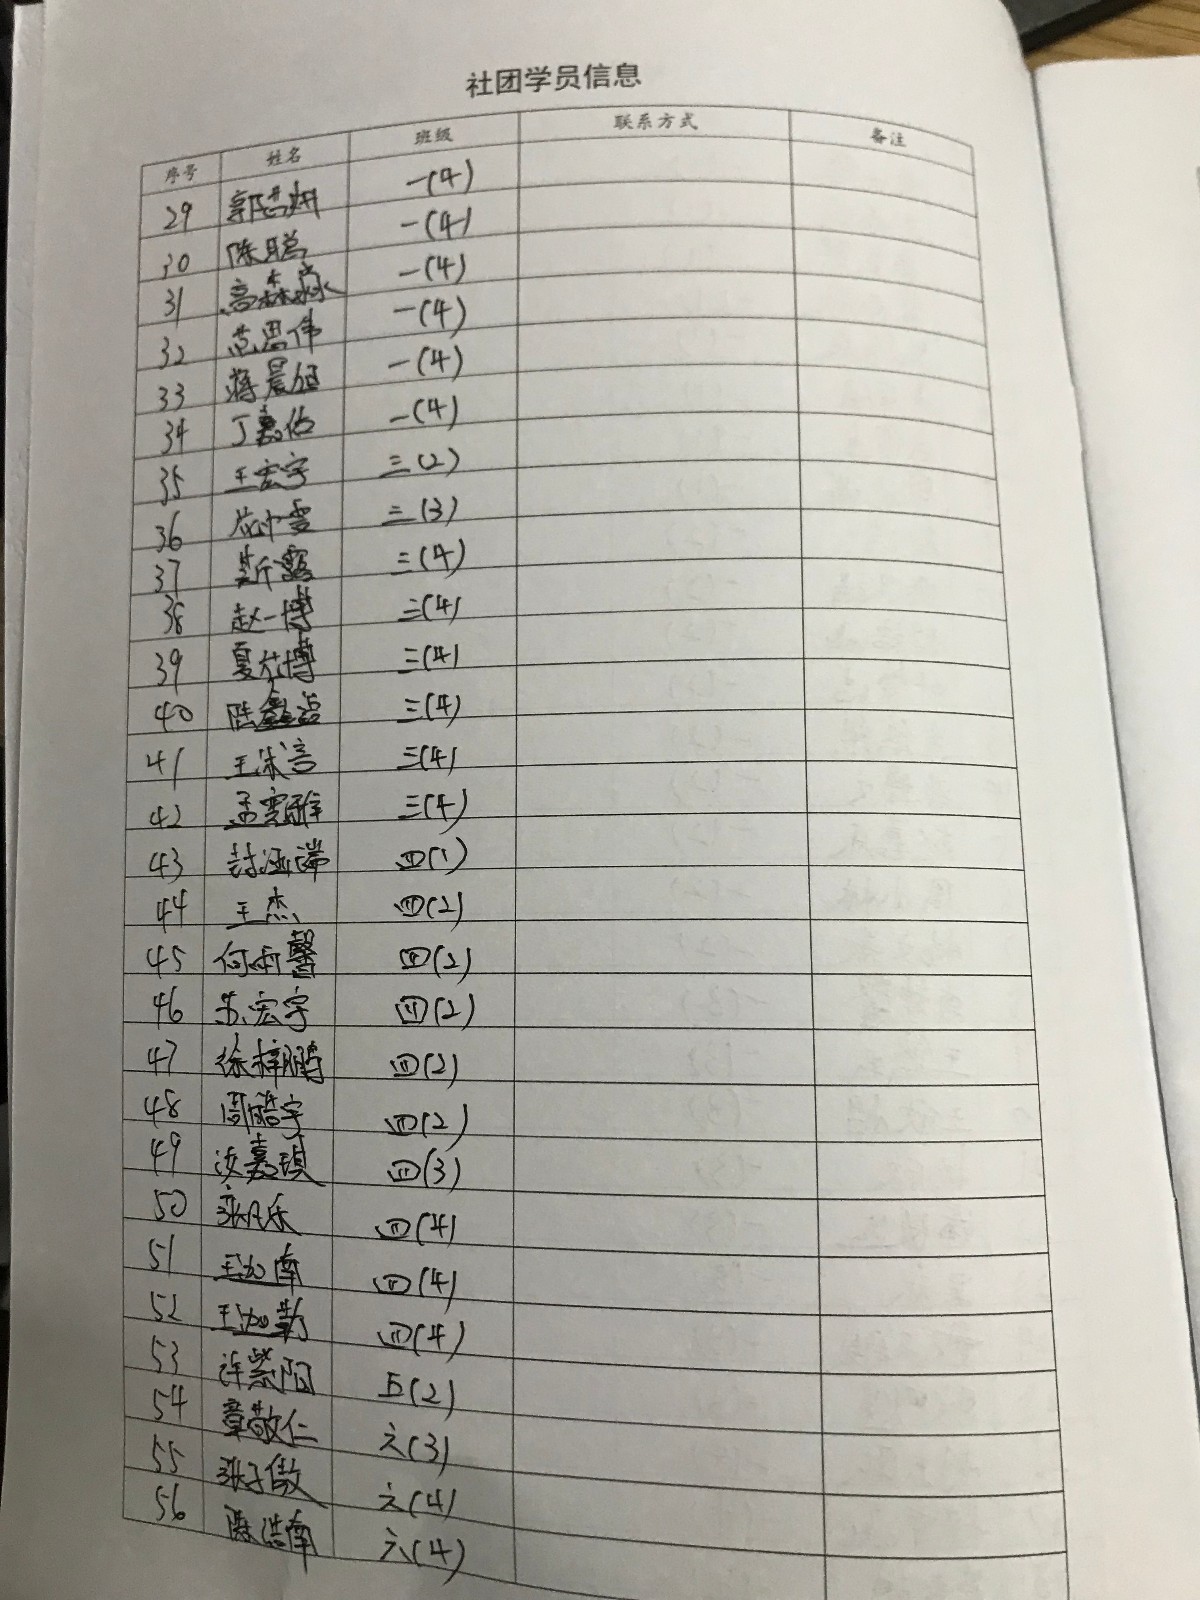 社团学员信息
序号 姓名 班级 联系方式 备注
29 一(4)
30 陈聪 一(4)
31 高森淼 一(4)
32 范思伟 一(4)
33 蒋晨 一(4)
34 丁嘉佑 一(4)
35 王宏宇 三(2)
36 三(3)
37 靳露 三(4)
38 赵一博 三(4)
39 夏 博 三(4)
40 陆鑫 三(4)
41 王沫言 三(4)
42 孟雯雅 三(4)
43 封涵 四(1)
44 王杰 四(2)
45 何雨馨 四(2)
46 苏宏宇 四(2)
47 徐梓鹏 四(2)
48 周皓宇 四(2)
49 汝嘉琪 四(3)
50 张凡乐 四(4)
51 王加南 四(4)
52 王加勤 四(4)
53 许紫阳 五(2)
54 章敬仁 六(3)
55 张子傲 六(4)
56 陈浩南 六(4)